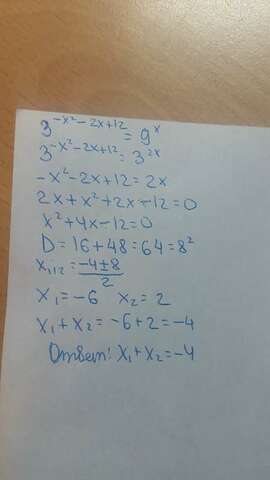 3^{-x²-2x+12} = 9^x
3^{-x²-2x+12} = 3^{2x}
-x²-2x+12=2x
2x+x²+2x-12=0
x²+4x-12=0
D=16+48=64=8²
x₁,₂=\frac{-4±8}{2}
x₁=-6 x₂=2
x₁+x₂=-6+2=-4
Ответ: x₁+x₂=-4